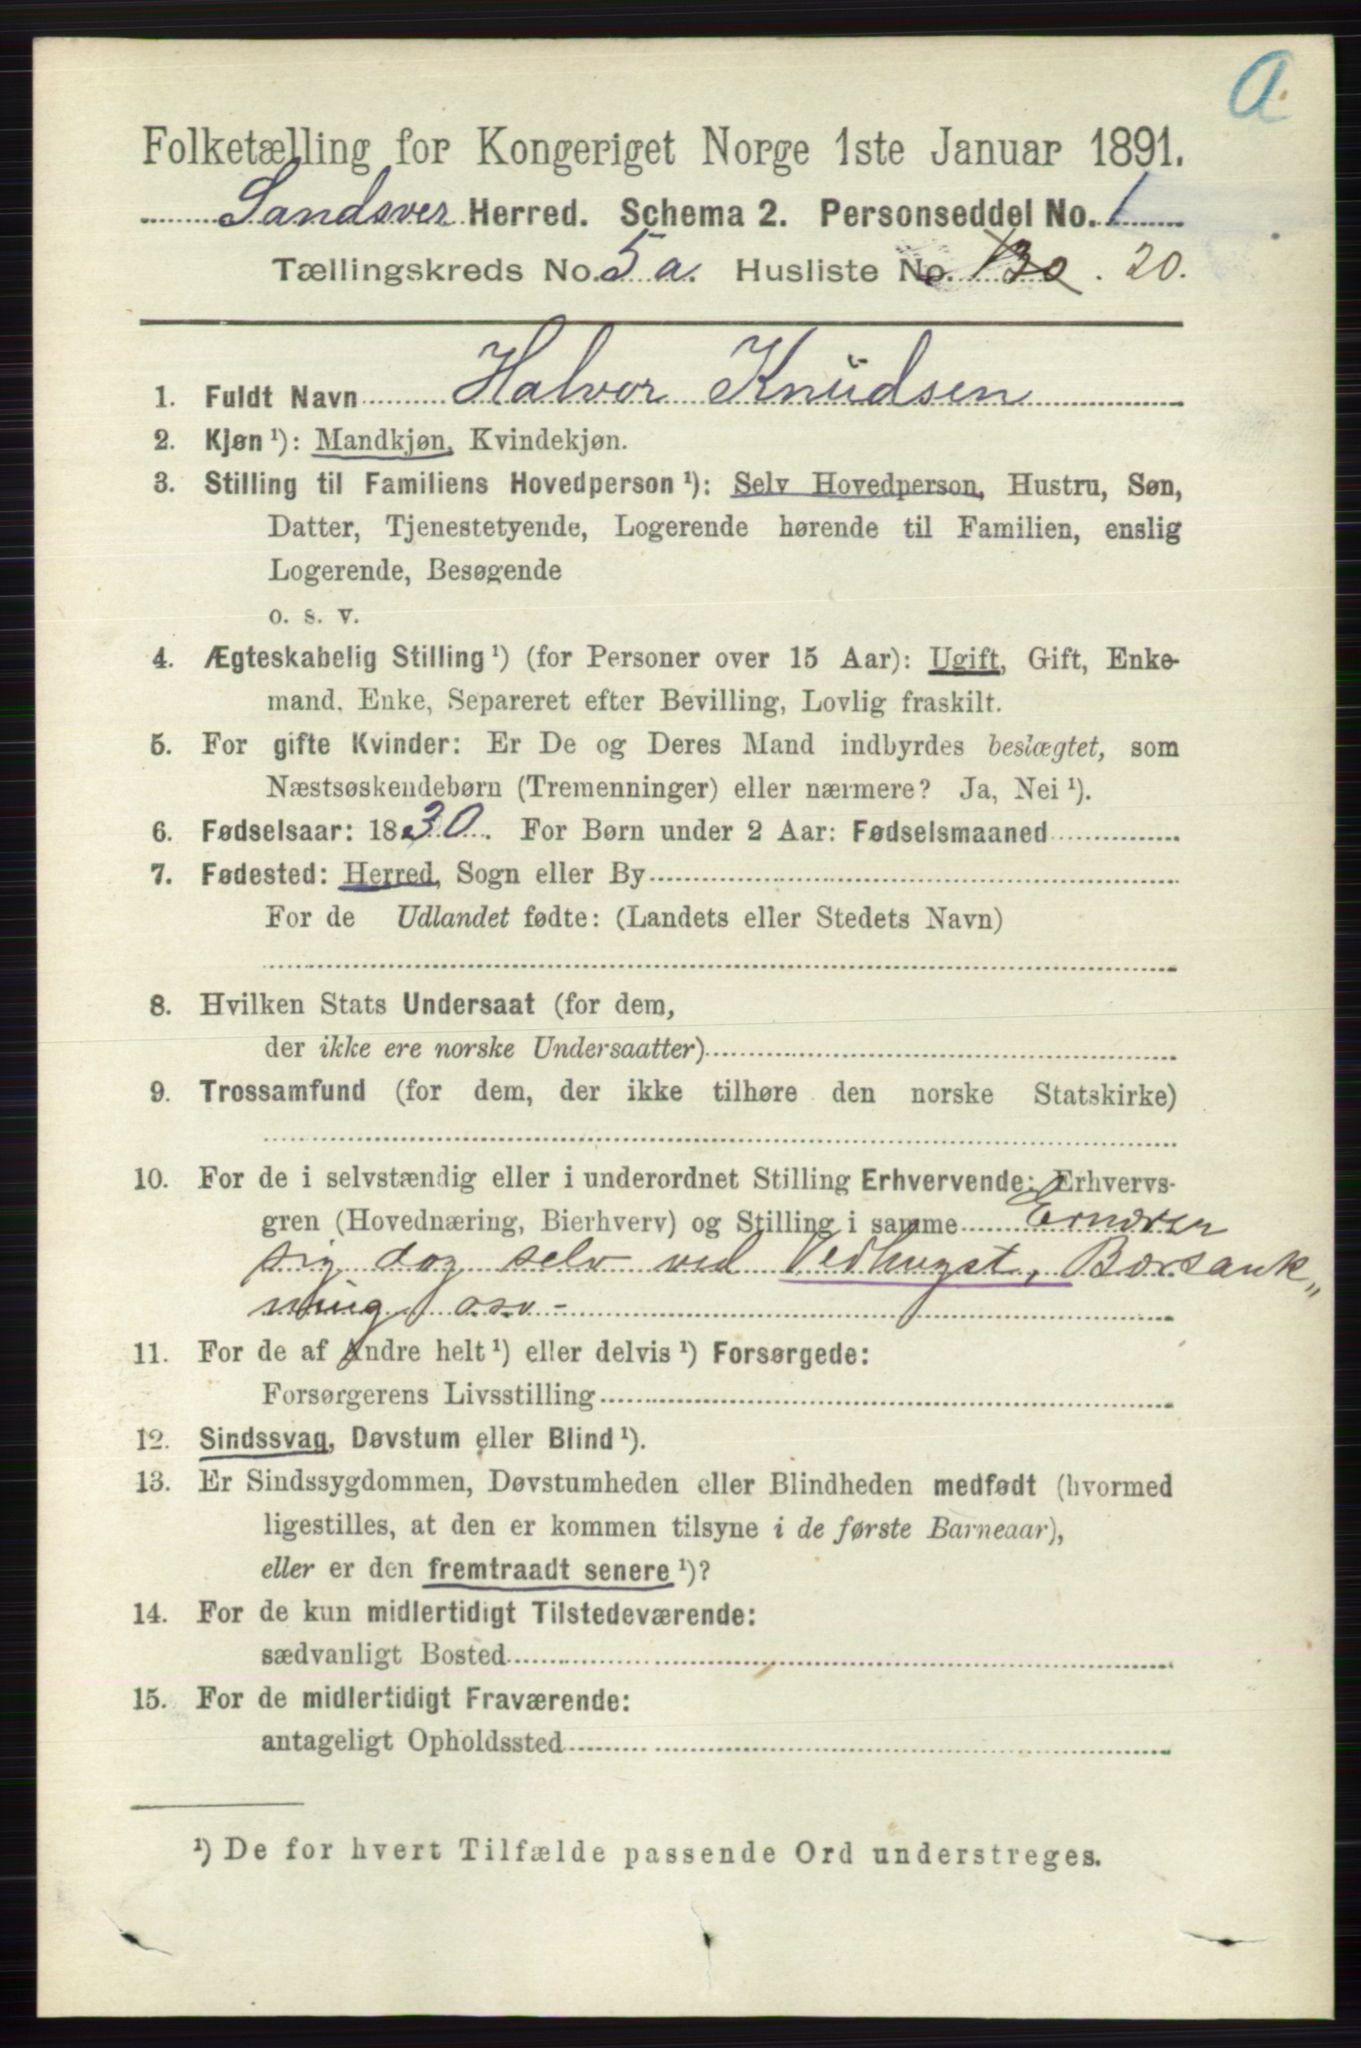 a.
Folketælling for Kongeriget Norge 1ste Januar 1891.
Sandsver Herred. Schema 2. Personseddel No. 1
Tællingskreds No. 5 a. Husliste No. 30. 20.
1. Fuldt Navn Halvor Knudsen
2. Kjøn ¹): Mandkjøn, Kvindekjøn.
3. Stilling til Familiens Hovedperson ¹): Selv Hovedperson, Hustru, Søn,
Datter, Tjenestetyende, Logerende hørende til Familien, enslig
Logerende, Besøgende
o. s. v.
4. Ægteskabelig Stilling ¹) (for Personer over 15 Aar): Ugift, Gift, Enke-
mand, Enke, Separeret efter Bevilling, Lovlig fraskilt.
5. For gifte Kvinder: Er De og Deres Mand indbyrdes beslægtet, som
Næstsøskendebørn (Tremenninger) eller nærmere? Ja, Nei ¹).
6. Fødselsaar: 1830. For Børn under 2 Aar: Fødselsmaaned
7. Fødested: Herred, Sogn eller By
For de Udlandet fødte: (Landets eller Stedets Navn)
8. Hvilken Stats Undersaat (for dem,
der ikke ere norske Undersaatter)
9. Trossamfund (for dem, der ikke tilhøre den norske Statskirke)
10. For de i selvstændig eller i underordnet Stilling Erhvervende: Erhvervs-
gren (Hovednæring, Bierhverv) og Stilling i samme Ernærer
sig dog selv ved Vedhugst, Bærsank„
ning osv -
11. For de af Andre helt ¹) eller delvis ¹) Forsørgede:
Forsørgerens Livsstilling
12. Sindssvag, Døvstum eller Blind ¹).
13. Er Sindssygdommen, Døvstumheden eller Blindheden medfødt (hvormed
ligestilles, at den er kommen tilsyne i de første Barneaar),
eller er den fremtraadt senere ¹)?
14. For de kun midlertidigt Tilstedeværende:
sædvanligt Bosted
15. For de midlertidigt Fraværende:
antageligt Opholdssted
¹) De for hvert Tilfælde passende Ord understreges.